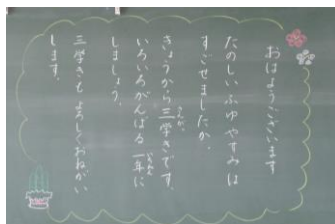 おはようございます
たのしいふゆやすみは
すごせましたか。
きょうから三学きです。
いろいろがんばる一年に
しましょう。
三学きも よろしくおねがい
します。